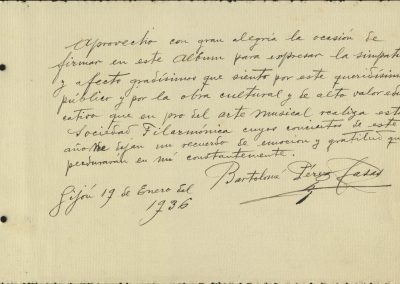 Aprovecho con gran alegria la ocasión de
firmar en este Album para expresar la simpatia
y afecto gradísimos que siento por este queridísimo
público y por la obra cultural y de alto valor edu-
cativo que en pro del arte musical realiza esta
Sociedad Filarmónica cuyos conciertos de este
año me dejan un recuerdo de emocion y gratitud que
perdurarán en mi constantemente.
Bartolomé Pérez Casas
Gijón 19 de Enero del
1936